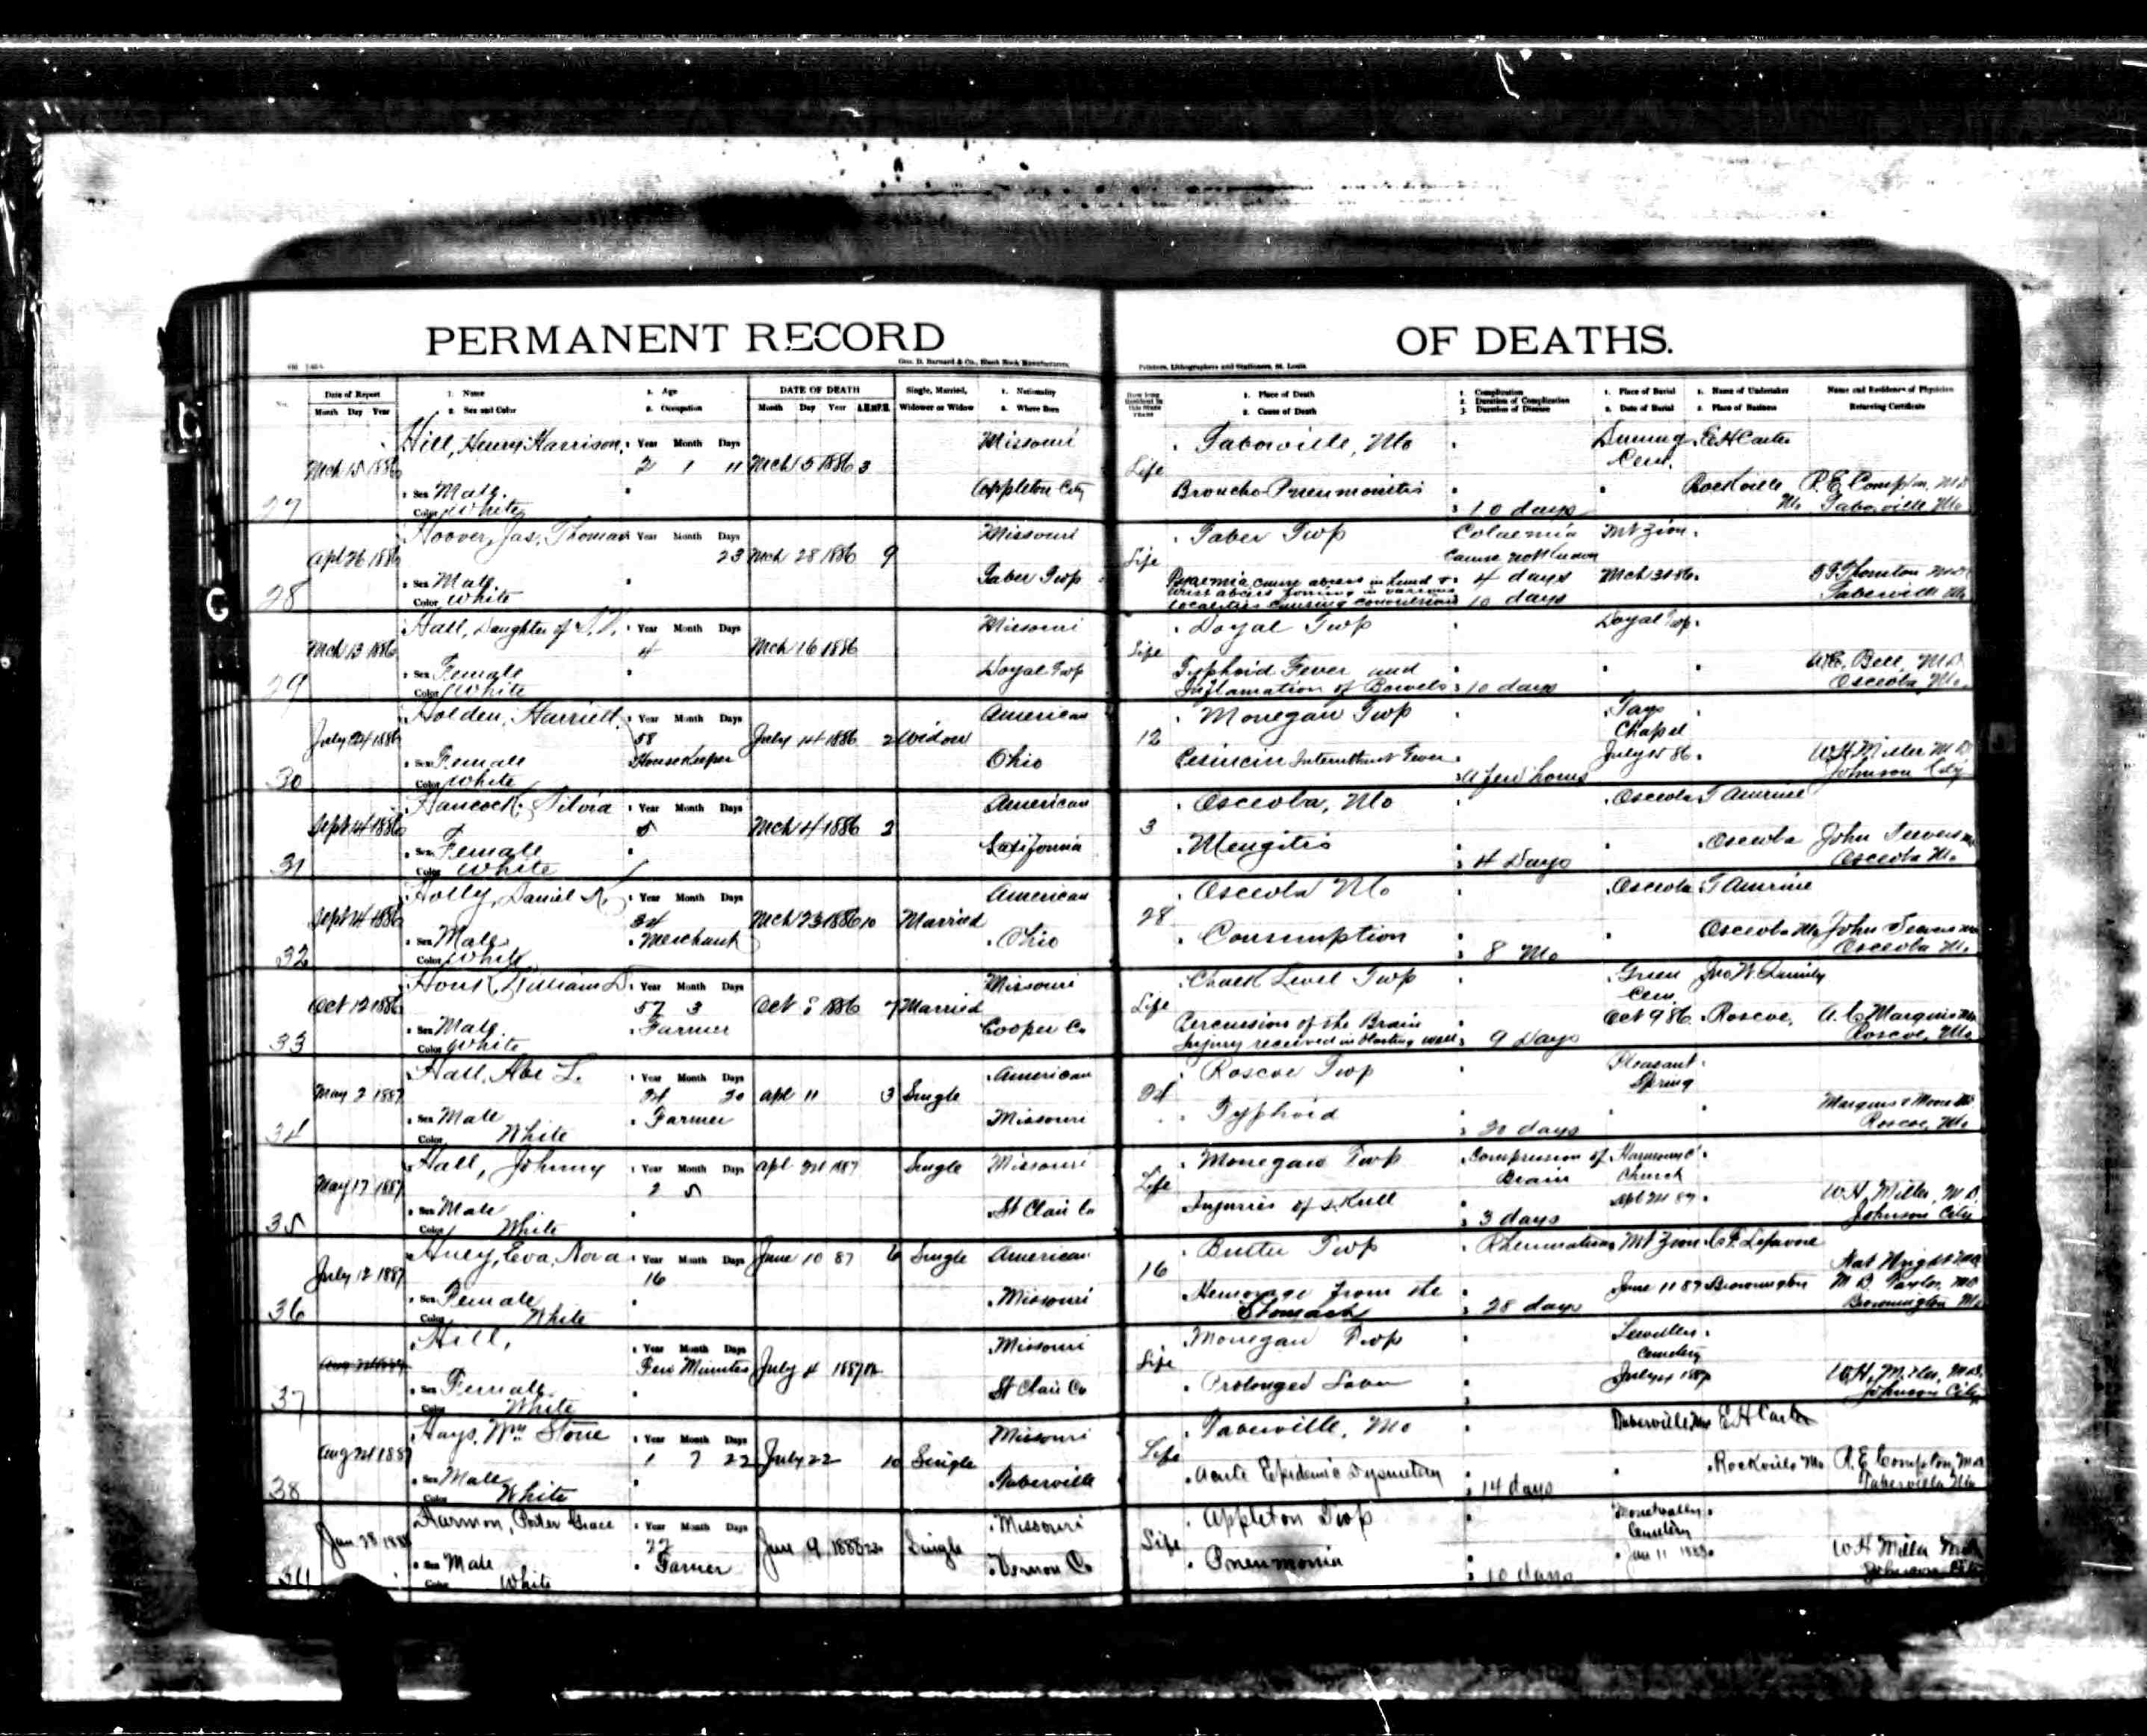 PERMANENT RECORD OF DEATHS.
Geo. D. Barnard & Co., Blank Book Manufacturers, Printers, Lithographers and Stationers, St. Louis
No.
Date of Report
Month Day Year
1. Name
2. Sex and Color
1. Age
2. Occupation
DATE OF DEATH
Month Day Year A.M. P.M.
Single, Married,
Widower or Widow
1. Nationality
2. Where Born
How long
Resident in
this State
YEARS
1. Place of Death
2. Cause of Death
1. Complication
2. Duration of Complication
3. Duration of Disease
1. Place of Burial
2. Date of Burial
1. Name of Undertaker
2. Place of Business
Name and Residence of Physician
Returning Certificate
Hill, Henry Harrison Year Month Days Missouri Taborville, Mo Cem. E H Carter
Mch 15 1886 2 1 11 Mch 5 1886 3 Life
Sex Male Appleton City Broncho Pneumonitis Rockville R. E. Compton, M D
27 Color White 10 days Mo Taberville Mo
Hoover, Jas. Thomas Year Month Days Missouri Taber Twp Mt Zion
Apl 26 1886 23 Mch 28 1886 9 Life Cause not known
Sex Male Taber Twp 4 days Mch 31 86 Thornton M D
28 Color White localities causing convulsions 10 days Taberville Mo
Hall, Daughter of Year Month Days Missouri Doyal Twp Doyal Twp
Mch 13 1886 4 Mch 16 1886 Life
Sex Female Doyal Twp Typhoid Fever and Bell, M D
29 Color White Inflamation of Bowels 10 days Osceola, Mo.
Holden, Harriett Year Month Days American Monegaw Twp Chapel
July 24 1886 58 July 14 1886 2 Widow 12
Sex Female Housekeeper Ohio Intermittent Fever July 15 86 W H Miller M D
30 Color White a few hours Johnson City
Hancock, Silvia Year Month Days American Osceola, Mo Osceola T Amrine
Sept 14 1886 5 Mch 4 1886 2 3
Sex Female California Mengitis Osceola John
31 Color White 4 Days Osceola Mo
Holly, Daniel Year Month Days American Osceola Mo Osceola T Amrine
Sept 14 1886 34 Mch 23 1886 10 Married 28
Sex Male Merchant Ohio Consumption Osceola Mo John
32 Color White 8 Mo Osceola Mo
William D. Year Month Days Missouri Chalk Level Twp Green Cem. Jno W.
Oct 12 1886 57 3 Oct 1886 7 Married Life
Sex Male Farmer Cooper Co of the Brain Oct 9 86 Roscoe, A. C. Marquis
33 Color White Injury received in blasting well 9 Days Roscoe, Mo
Hall, Abe L. Year Month Days American Roscoe Twp Pleasant Spring
May 2 1887 24 20 Apl 11 3 Single 24
Sex Male Farmer Missouri Typhoid Marquis & Moore
34 Color White 20 days Roscoe, Mo
Hall, Johnny Year Month Days Apl 1887 Single Missouri Monegaw Twp Compression of Brain Church
May 17 1887 2 5 Life
Sex Male St Clair Co Injuries of skull W H, Miller, M D,
35 Color White 3 days Johnson City
Huey, Eva Nora Year Month Days June 10 87 6 Single American Butler Twp Rheumatism Mt Zion
July 12 1887 16 16
Sex Female Missouri Hemorage from the Stomach June 11 87 Brownington
36 Color White 28 days Brownington Mo
Hill, Year Month Days Missouri Monegaw Twp Cemetery
Few Minutes July 4 1887 Life
Sex Female St Clair Co Prolonged Labor July 1887 W H, Miller, M D.
37 Color White Johnson City
Hays, Wm Stone Year Month Days Missouri Taberville, Mo Taberville Mo E H Carter
Aug 24 1887 1 7 22 July 22 10 Single Life
Sex Male Taberville Acute Epidemic Dysentery Rockville Mo R. E. Compton, M D
38 Color White 14 days Taberville Mo
Harmon, Porter Grace Year Month Days Missouri Appleton Twp Cemetery
Jan 28 1888 22 Jan 9 1888 Single Life
Sex Male Farmer Vernon Co Pneumonia Jan 11 1888 W H Miller M D
Color White 10 days Johnson City